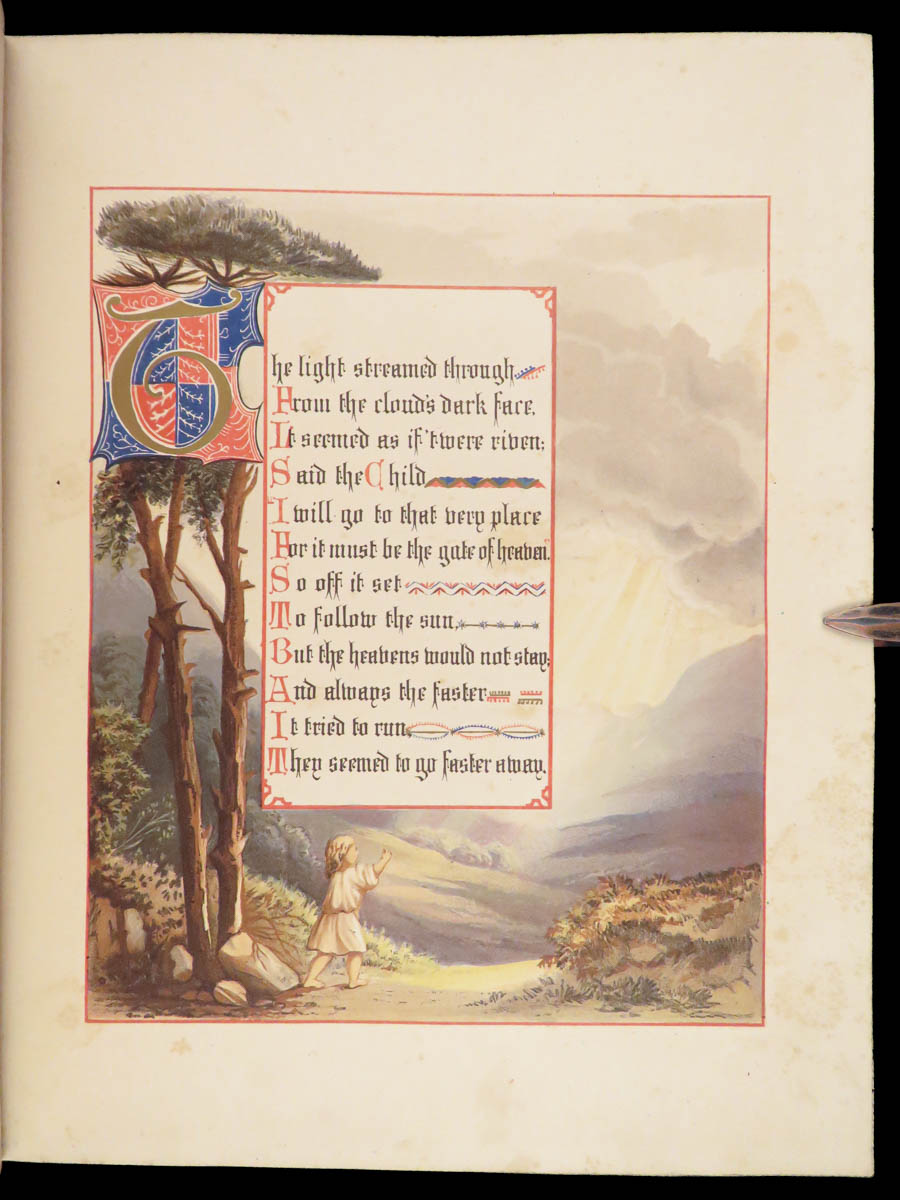 The light streamed through
From the cloud's dark face,
It seemed as if 'twere riven;
Said the Child
I will go to that very place
For it must be the gate of heaven."
So off it set
To follow the sun,
But the heavens would not stay;
And always the faster
It tried to run
They seemed to go faster away.